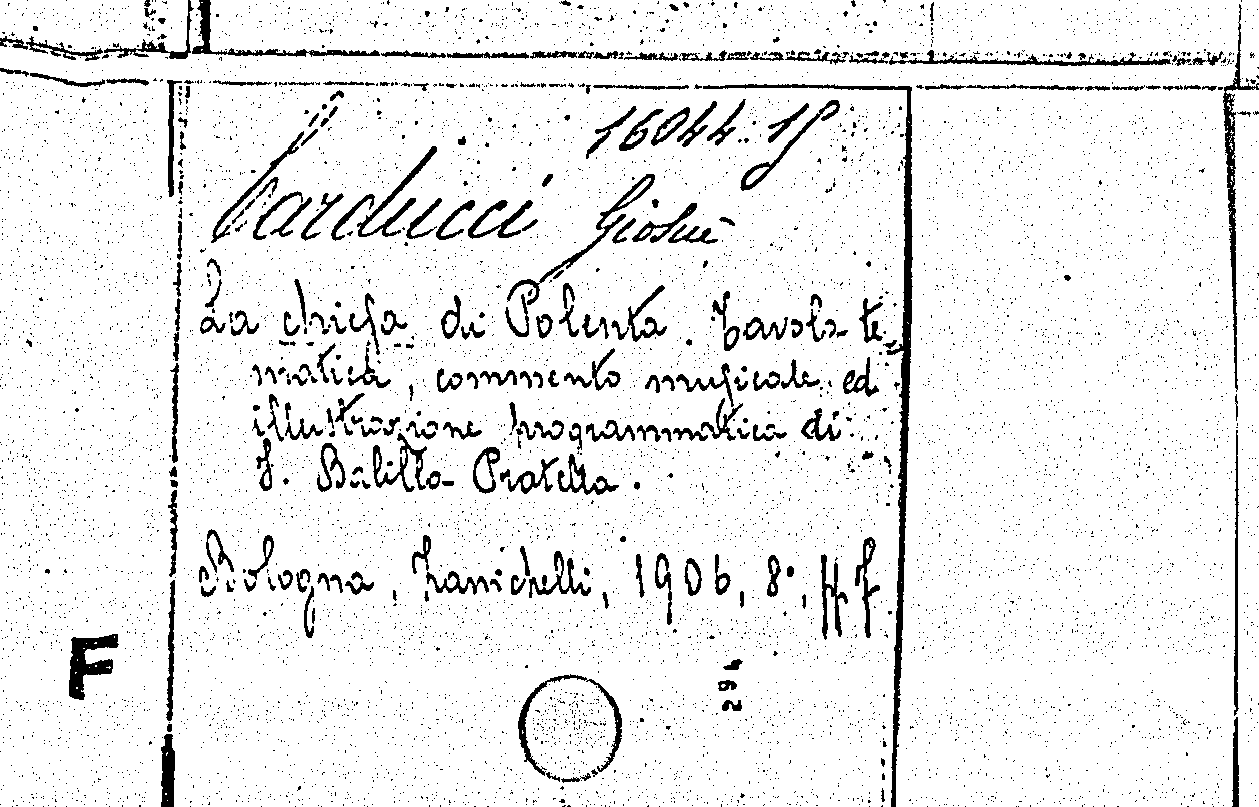 16044. 15
Carducci Giosuè
La chiesa di Polenta. Tavola te-
matica, commento musicale ed
illustrazione programmatica di
F. Balilla Pratella.
Bologna, Zanichelli, 1906, 8°, pp
F
294